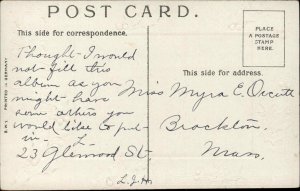 POST CARD.
This side for correspondence.
PLACE
A POSTAGE
STAMP
HERE.
Thought I would
not fill this
album as you
might have
some others you
would like to put
in. L.
23 Glenwood St.
This side for address.
Miss Myra E. Orcutt
Brockton,
Mass.
L.J.H.
PRINTED IN GERMANY